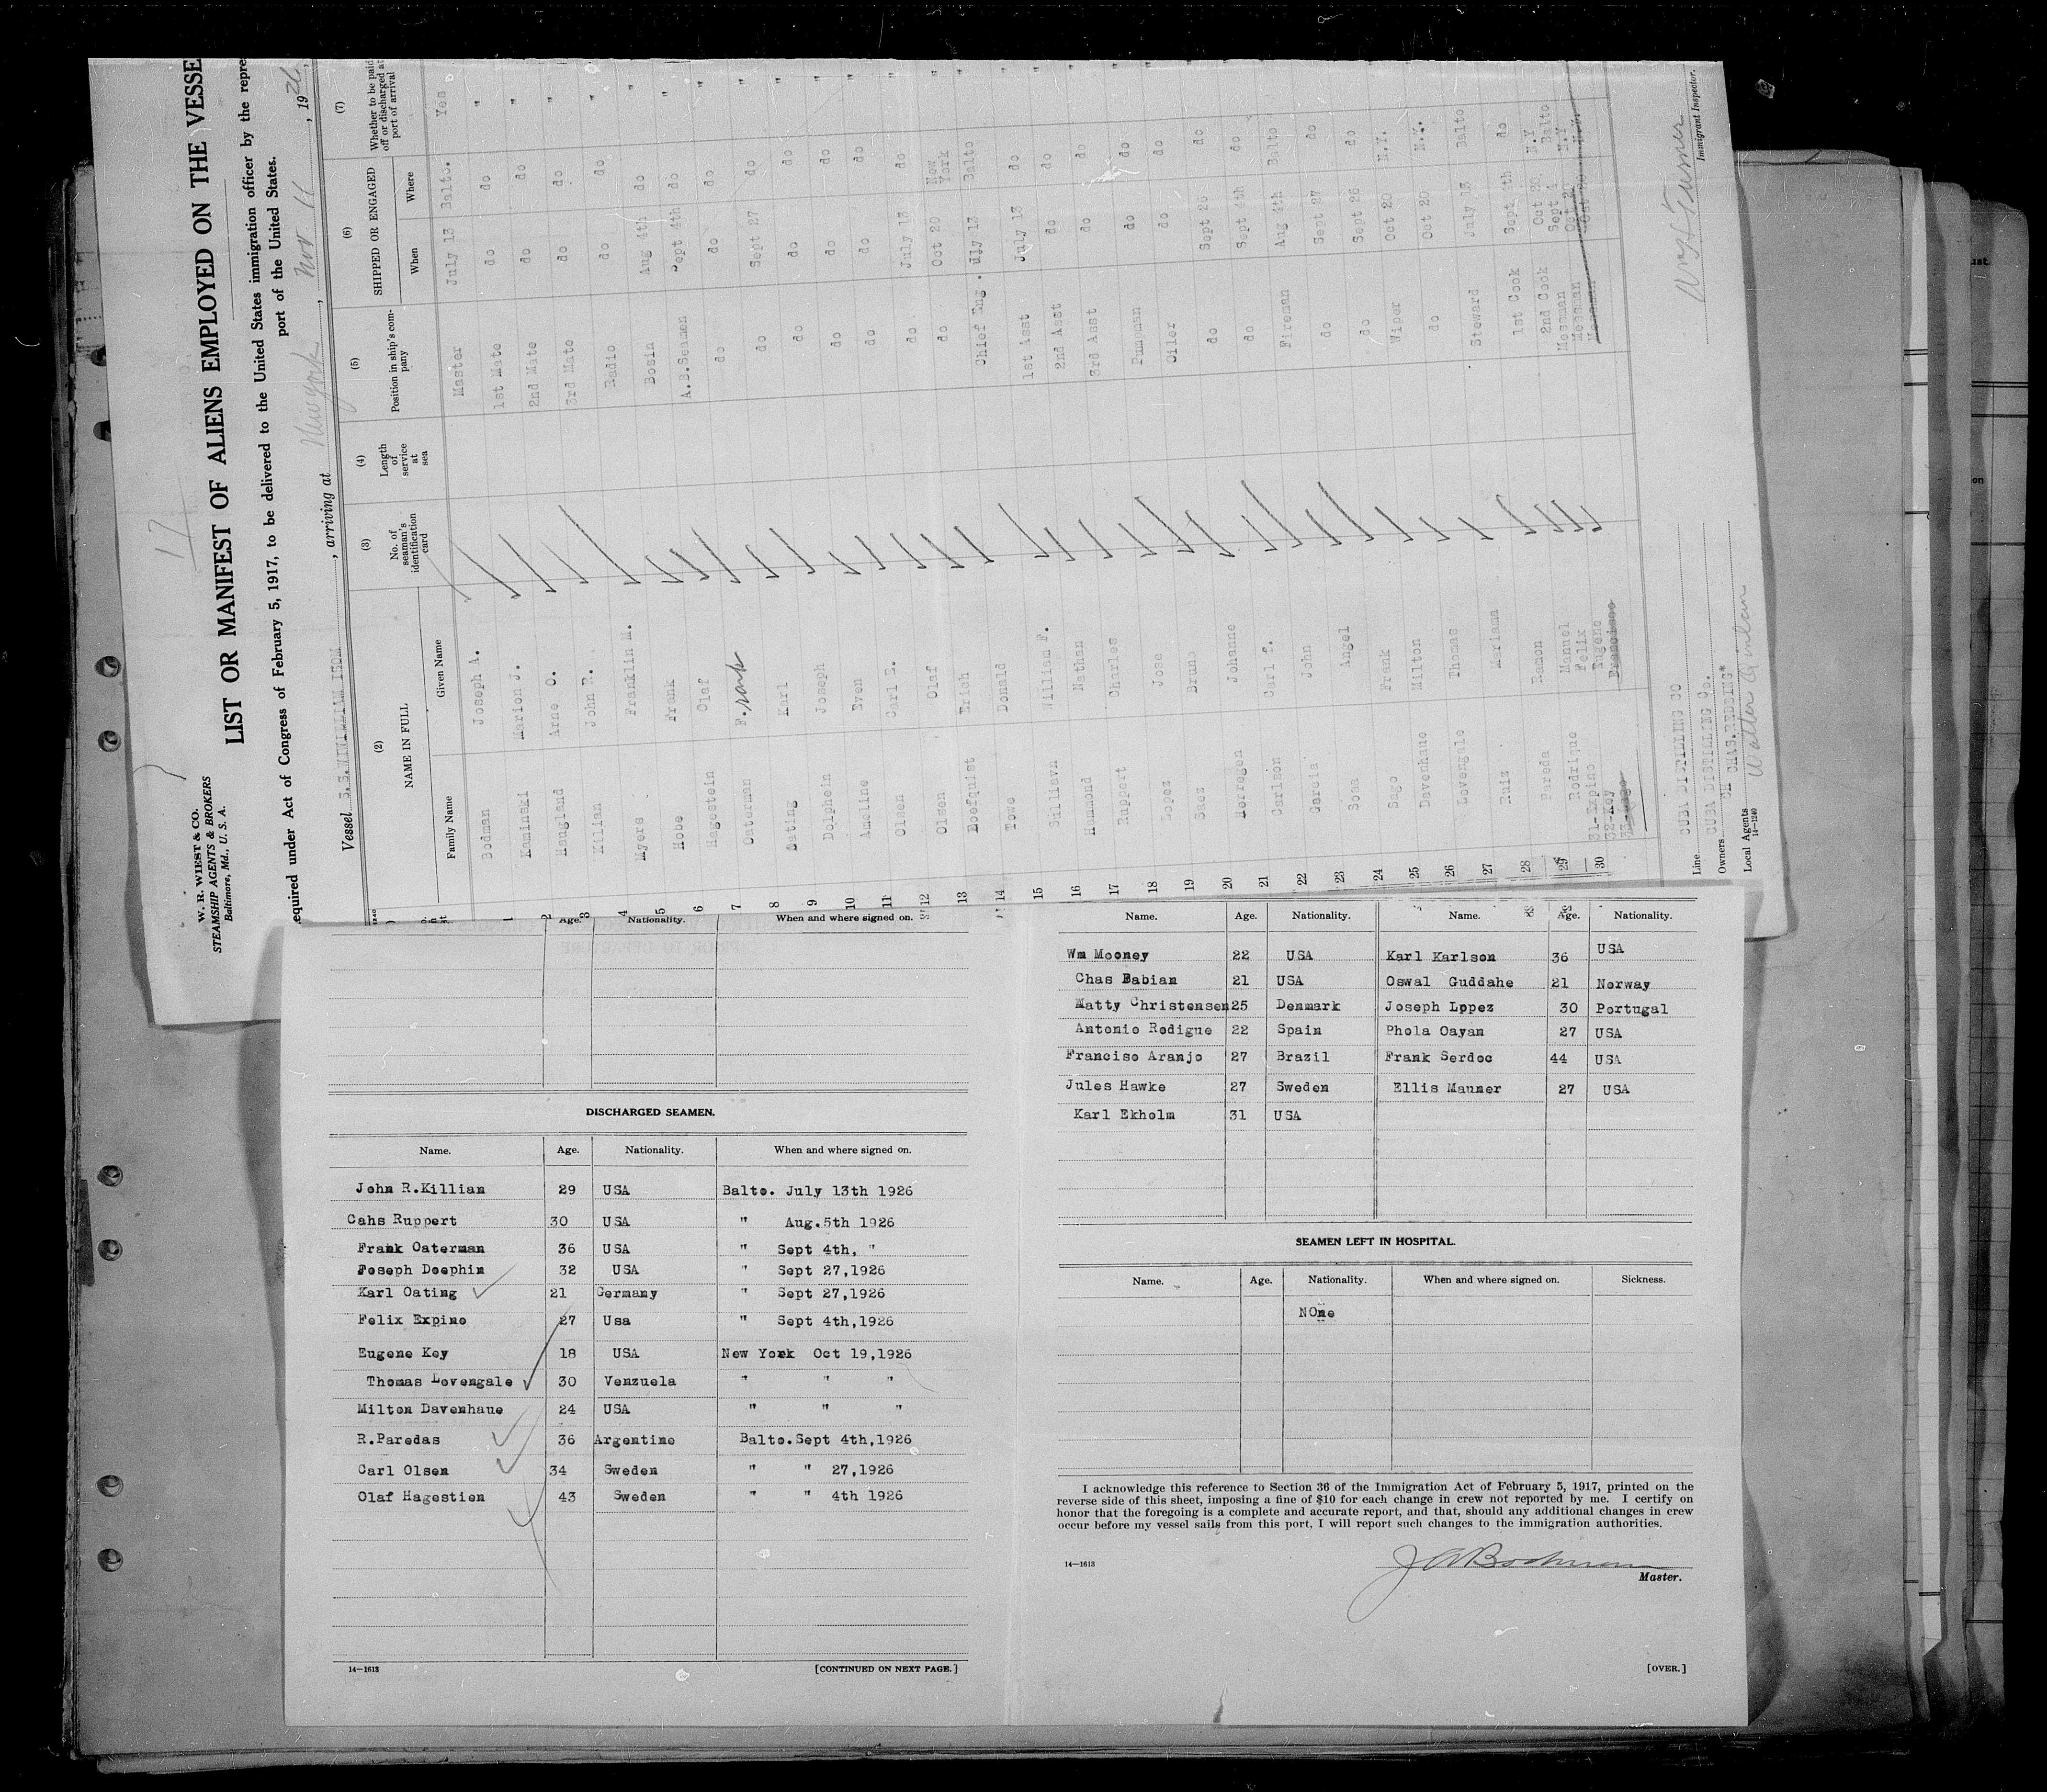 17
W. R. WIEST & CO.
STEAMSHIP AGENTS & BROKERS
Baltimore, Md., U. S. A.
LIST OR MANIFEST OF ALIENS EMPLOYED ON THE VESSE
equired under Act of Congress of February 5, 1917, to be delivered to the United States immigration officer by the repre
port of the United States.
Vessel S.S. WILLIAM ISOM, arriving at New york, Nov 11, 1926,
(2) (3) (4) (5) (6) (7)
NAME IN FULL No. of seaman's identification card Length of service at sea Position in ship's company SHIPPED OR ENGAGED Whether to be paid off or discharged at port of arrival
Family Name Given Name When Where
1 Bodman Joseph A. Master July 13 Balto. Yes
2 Kaminski Marion J. 1st Mate do do "
3 Haugland Arne O. 2nd Mate do do "
4 Killian John R. 3rd Mate do do "
5 Myers Franklin M. Radio do do "
6 Hobe Frank Bosin Aug 4th do "
7 Hagestein Olaf A.B.Seamen Sept 4th do "
8 Oaterman F. Frank do do do "
9 Oating Karl do Sept 27 do "
10 Dolphein Joseph do do do "
11 Ameline Even do do do "
12 Olsen Carl E. do do do "
13 Olsen Olaf do July 13 do "
Eoefquist Erich do Oct 20 New York "
14 Towe Donald Chief Eng. July 13 Balto "
15 Sullivavn William F. 1st Asst July 13 do "
16 Hammond Nathan 2nd Asst do do "
17 Ruppert Charles 3rd Asst do do "
18 Lopez Jose Pumpman do do "
19 Saez Bruno Oiler do do "
20 Herregen Johanne do Sept 26 do "
21 Carlson Carl F. do Sept 4th do "
22 Garcia John Fireman Aug 4th Balto "
23 Sosa Angel do Sept 27 do "
24 Sago Frank do Sept 26 do "
25 Davenhaue Milton Wiper Oct 20 N.Y. "
26 Lovengale Thomas do Oct 20 N.Y. "
27 Ruiz Mariama Steward July 13 Balto "
28 Pareda Ramon 1st Cook Sept 4th do "
29 Rodrique Manuel 2nd Cook Oct 20 N.Y "
30 31-Expino Felix Messman Sept 4 Balto "
32-Key Eugene Messman Oct 20 N.Y "
33-Sago Francisco Messman Oct 20 N.Y.
Line CUBA DISTILLING CO
Owners CUBA DISTILLING Co.
Local Agents CH CHAS.REDDING*
14-1240
Immigrant Inspector.
Age. Nationality. When and where signed on.
DISCHARGED SEAMEN.
Name. Age. Nationality. When and where signed on.
John R.Killian 29 USA Balto. July 13th 1926
Cahs Ruppert 30 USA " Aug.5th 1926
Frank Oaterman 36 USA " Sept 4th, "
Joseph Doephin 32 USA " Sept 27,1926
Karl Oating 21 Germany " Sept 27,1926
Felix Expino 27 Usa " Sept 4th,1926
Eugene Key 18 USA New York Oct 19,1926
Thomas Lovengale 30 Venzuela " " "
Milton Davenhaue 24 USA " " "
R.Paredas 36 Argentine Balto.Sept 4th,1926
Carl Olsen 34 Sweden " " 27,1926
Olaf Hagestien 43 Sweden " " 4th 1926
14—1613 [CONTINUED ON NEXT PAGE.]
Name. Age. Nationality. Name. Age. Nationality.
Wm Mooney 22 USA Karl Karlson 36 USA
Chas Babian 21 USA Oswal Guddahe 21 Norway
Matty Christensen 25 Denmark Joseph Lppez 30 Portugal
Antonio Rodigue 22 Spain Phola Oayan 27 USA
Franciso Aranjo 27 Brazil Frank Serdoc 44 USA
Jules Hawke 27 Sweden Ellis Mauner 27 USA
Karl Ekholm 31 USA
SEAMEN LEFT IN HOSPITAL.
Name. Age. Nationality. When and where signed on. Sickness.
NOne
I acknowledge this reference to Section 36 of the Immigration Act of February 5, 1917, printed on the
reverse side of this sheet, imposing a fine of $10 for each change in crew not reported by me. I certify on
honor that the foregoing is a complete and accurate report, and that, should any additional changes in crew
occur before my vessel sails from this port, I will report such changes to the immigration authorities.
14—1613
J A Bodman
Master.
[OVER.]